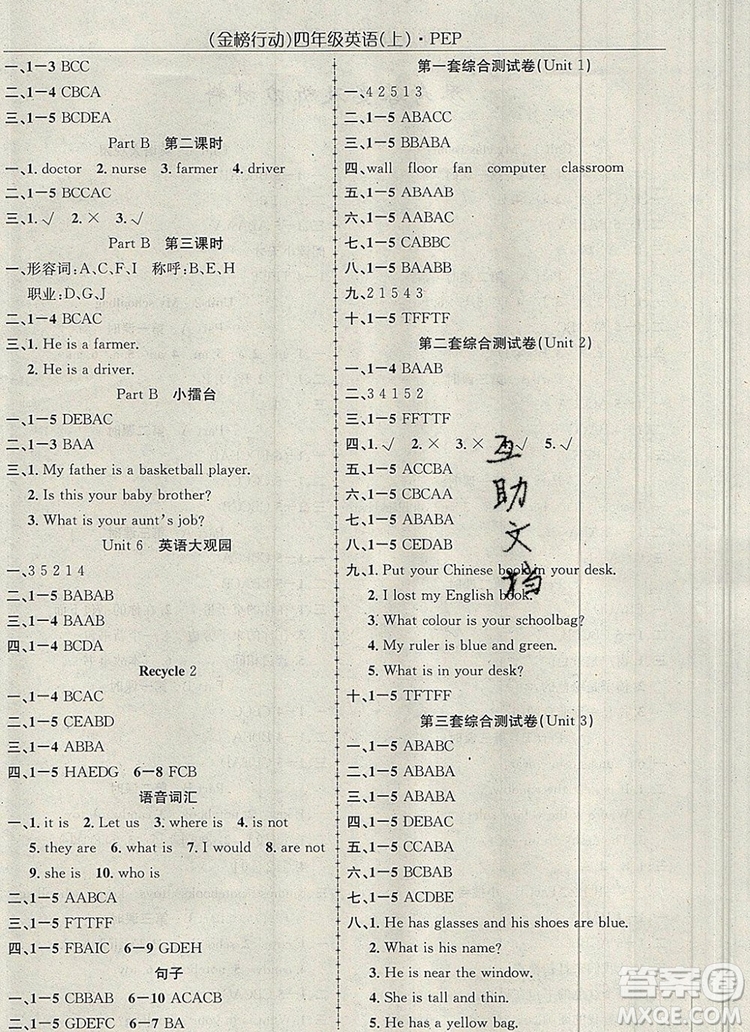 (金榜行动)四年级英语(上)·PEP
一、1—3 BCC
二、1—4 CBCA
三、1—5 BCDEA
Part B 第二课时
一、1. doctor 2. nurse 3. farmer 4. driver
二、1—5 BCCAC
三、1. √ 2. × 3. √
Part B 第三课时
一、形容词:A、C、F、I 称呼:B、E、H
职业:D、G、J
二、1—4 BCAC
三、1. He is a farmer.
2. He is a driver.
Part B 小擂台
一、1—5 DEBAC
二、1—3 BAA
三、1. My father is a basketball player.
2. Is this your baby brother?
3. What is your aunt's job?
Unit 6 英语大观园
一、3 5 2 1 4
二、1—5 BABAB
三、1—4 BAAB
四、1—4 BCDA
Recycle 2
一、1—4 BCAC
二、1—5 CEABD
三、1—4 ABBA
四、1—5 HAEDG 6—8 FCB
语音词汇
一、1. it is 2. Let us 3. where is 4. is not
5. they are 6. what is 7. I would 8. are not
9. she is 10. who is
二、1—5 AABCA
三、1—5 FTTFF
四、1—5 FBAIC 6—9 GDEH
句子
一、1—5 CBBAB 6—10 ACACB
二、1—5 GDEFC 6—7 BA
第一套综合测试卷(Unit 1)
一、4 2 5 1 3
二、1—5 ABACC
三、1—5 BBABA
四、wall floor fan computer classroom
五、1—5 ABAAB
六、1—5 AABAC
七、1—5 CABBC
八、1—5 BAABA
九、2 1 5 4 3
十、1—5 TFFTF
第二套综合测试卷(Unit 2)
一、1—4 BAAB
二、3 4 1 5 2
三、1—5 FFTTF
四、1. √ 2. × 3. × 4. √ 5. √
五、1—5 ACCBA
六、1—5 CBCAA
七、1—5 ABABA
八、1—5 CEDAB
九、1. Put your Chinese book in your desk.
2. I lost my English book.
3. What colour is your schoolbag?
4. My ruler is blue and green.
5. What is in your desk?
十、1—5 TFTFF
第三套综合测试卷(Unit 3)
一、1—5 ABABC
二、1—5 ABABB
三、1—5 ABAAB
四、1—5 DEBAC
五、1—5 CCABA
六、1—5 BCBAB
七、1—5 ACDBE
八、1. He has glasses and his shoes are blue.
2. What is his name?
3. He is near the window.
4. What is that?
5. He has a yellow bag.
互助文档
答案圈
MXQE.COM